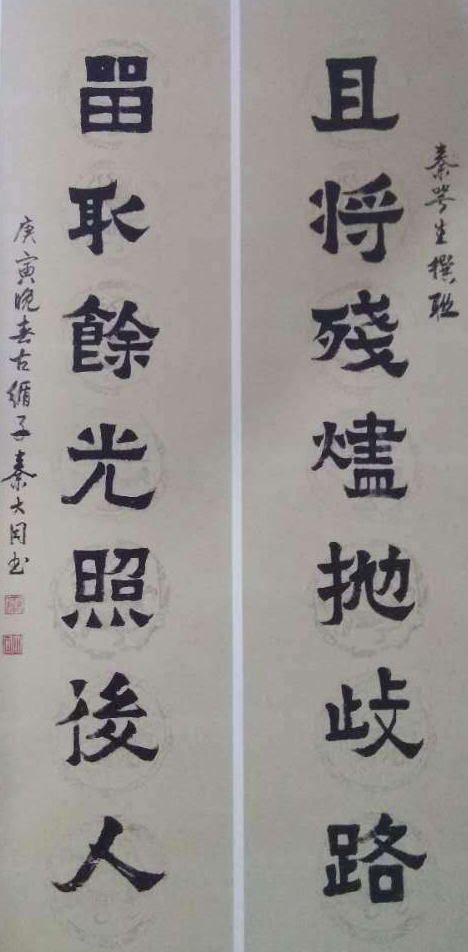 秦咢生撰联
且将殘燼抛歧路
畱取餘光照後人
庚寅晚春古循子秦大同书